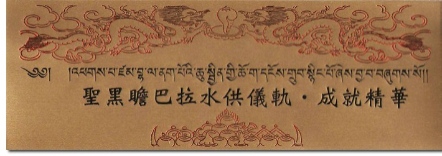 ༄༅། །འཕགས་པ་ཛམ་བྷ་ལ་ནག་པོའི་ཆུ་སྦྱིན་གྱི་ཆོ་ག་དངོས་གྲུབ་སྙིང་པོ་ཞེས་བྱ་བ་བཞུགས་སོ།།
聖黑瞻巴拉水供儀軌·成就精華